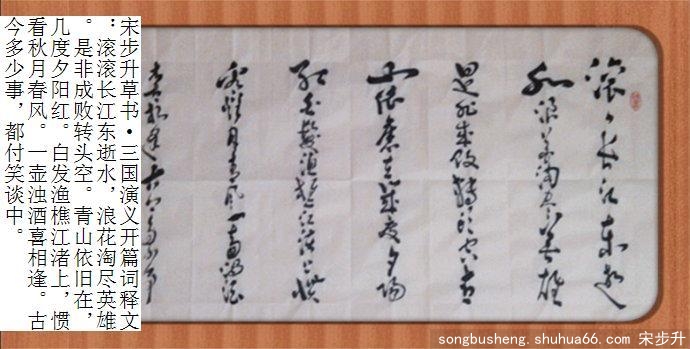 滚滚长江东逝
水浪花淘尽英雄
是非成败转头空青
山依旧在几度夕阳
红白发渔樵江渚上惯
看秋月春风一壶浊酒
喜相逢古今多少事
宋步升草书·三国演义开篇词释文
：滚滚长江东逝水，浪花淘尽英雄
。是非成败转头空。青山依旧在，
几度夕阳红。白发渔樵江渚上，惯
看秋月春风。一壶浊酒喜相逢。古
今多少事，都付笑谈中。
songbusheng.shuhua66.com 宋步升